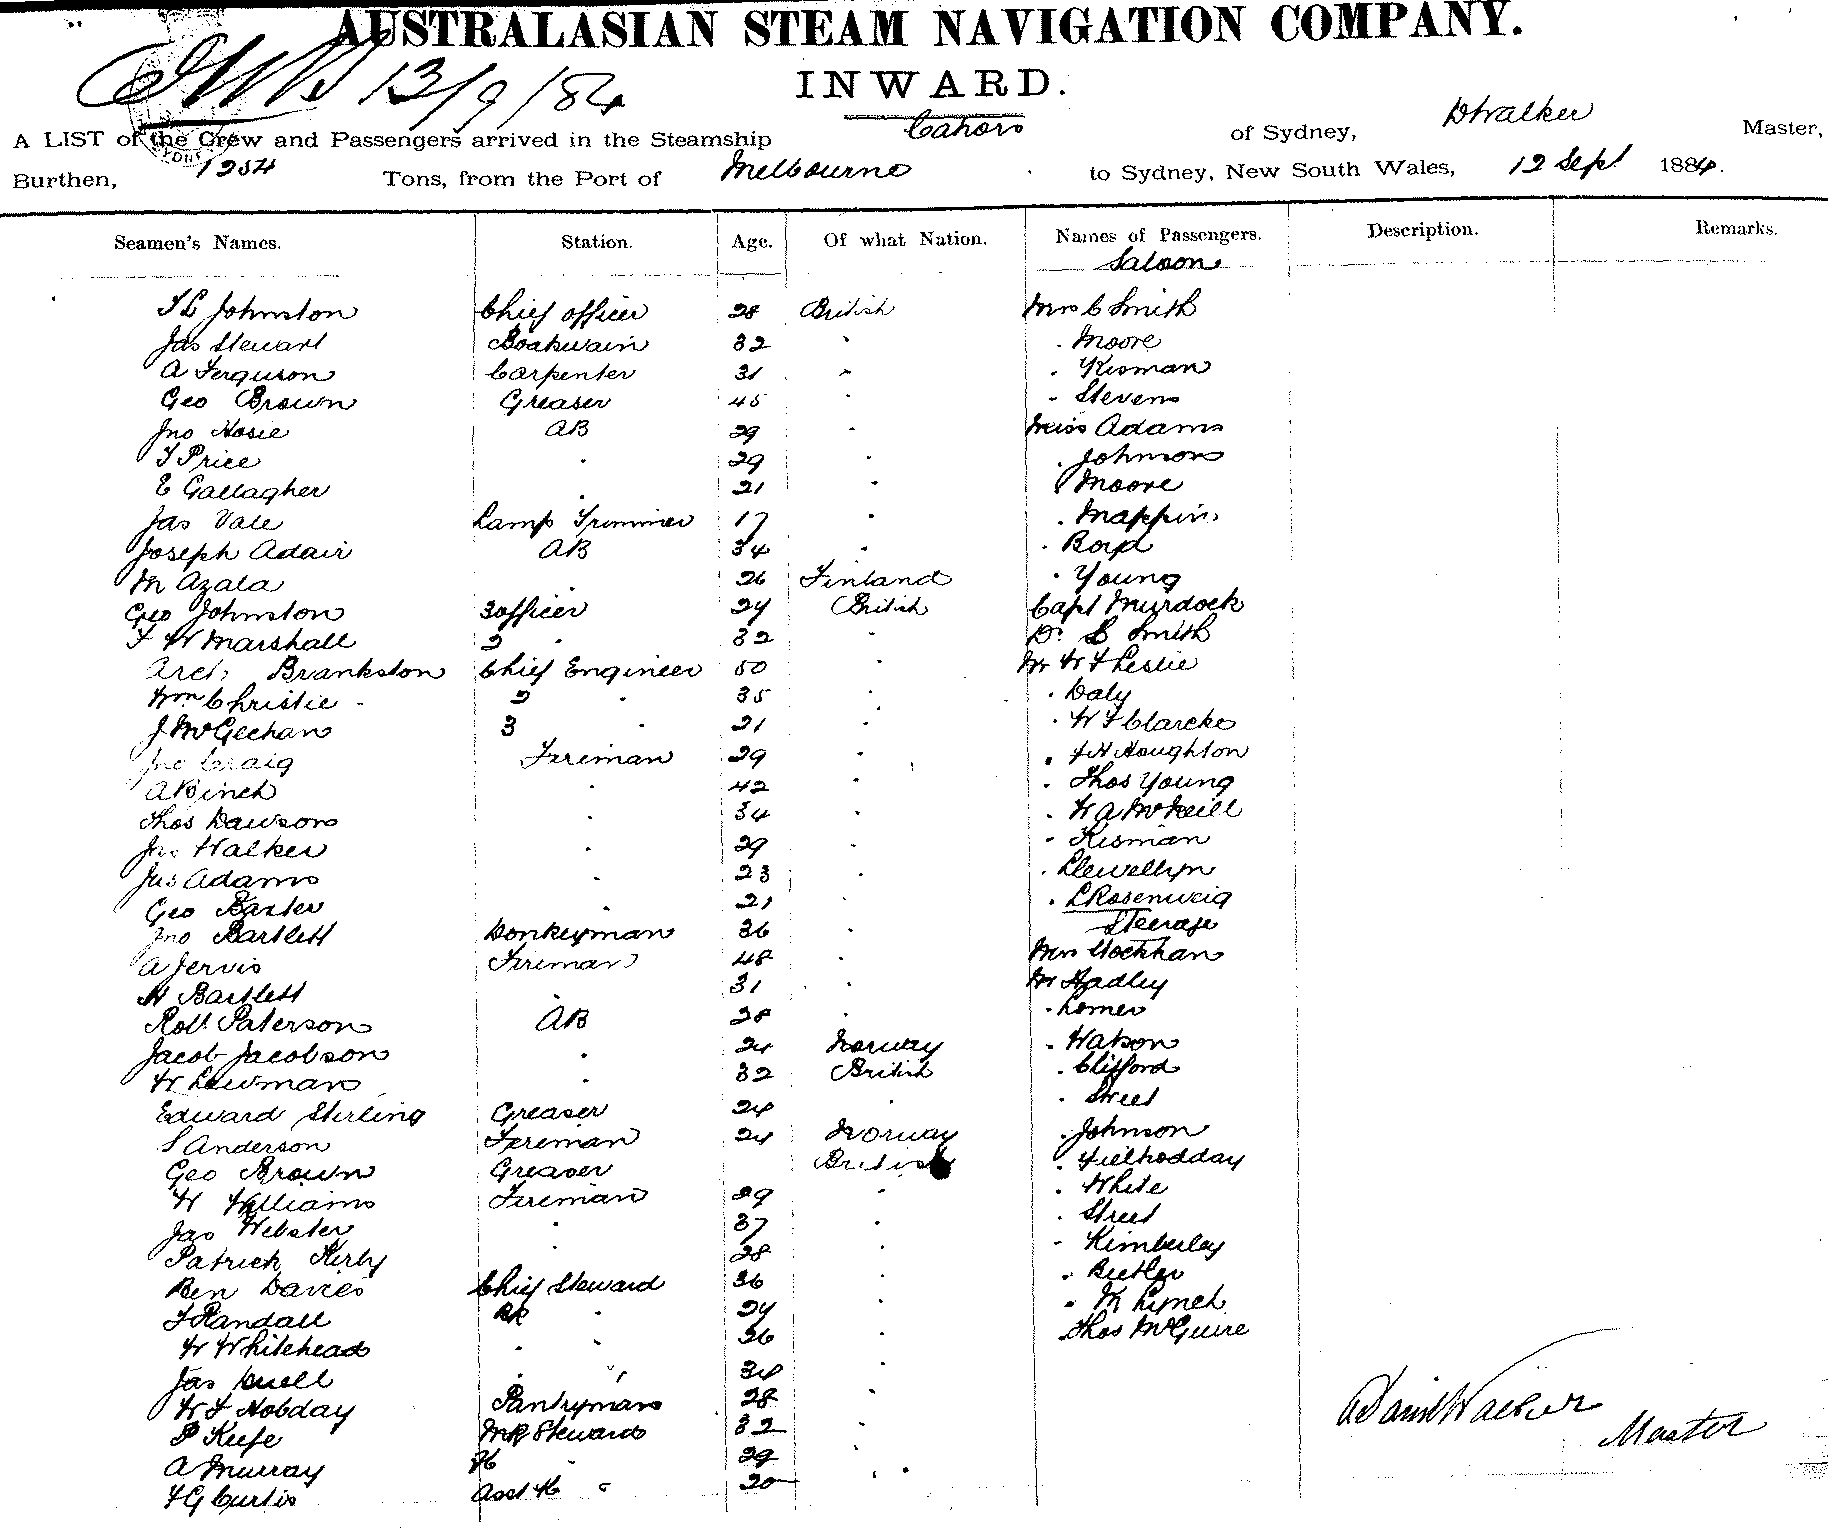 AUSTRALASIAN STEAM NAVIGATION COMPANY.
13/9/84
INWARD.
A LIST of the Crew and Passengers arrived in the Steamship Cahors of Sydney, D Walker Master,
Burthen, 1254 Tons, from the Port of Melbourne to Sydney, New South Wales, 12 Sept 1884.
Seamen's Names. Station. Age. Of what Nation. Names of Passengers. Description. Remarks.
Saloon
Johnston Chief officer 28 British Mrs C Smith
Jas Stewart Boatswain 32 " Moore
A Ferguson Carpenter 31 " Kisman
Geo Brown Greaser 45 " Stevens
Jno Hosie AB 29 " Miss Adams
T Price " 29 " " Johnson
E Gallagher " 21 " Moore
Jas Vale Lamp Trimmer 17 " " Mappin
Joseph Adair AB 34 " " Boyd
M Azala " 26 Finland " Young
Geo Johnston 3 officer 24 British Capt Murdock
F W Marshall 2 " 32 " Dr S Smith
Arch Brankston Chief Engineer 50 " Mr W F Leslie
Wm Christie 2 " 35 " " Daly
J McGeehan 3 " 21 " " W F Clarcke
Jno Craig Fireman 29 " " Houghton
A Binch " 42 " " Thos Young
Thos Dawson " 34 " " W A McNeill
Jno Walker " 29 " " Kisman
Jas Adams " 23 " " Llewellyn
Geo Baxter " 21 " " L Rosenweig
Steerage
Jno Bartlett Donkeyman 36 "
A Jervis Fireman 48 " Mrs
H Bartlett " 31 " Mr Hadley
Robt Paterson AB 28 " " Lomer
Jacob Jacobson " 24 Norway " Watson
W Lawman " 32 British " Clifford
Edward Sterling Greaser 24 " " Street
S Anderson Fireman 24 Norway " Johnson
Geo Brown Greaser British "
W Williams Fireman 29 " " White
Jas Webster " 37 " " Street
Patrick Kirby " 28 " " Kimberley
Ben Davies Chief Steward 36 " " Butler
F Randall BK " 24 " " M Lynch
W Whitehead " " 26 " Thos McGuire
Jas " " 34 "
W F Hobday Pantryman 28 "
P Keefe Steward 32 "
A Murray " 29
F G Curtis Asst " 20 "
Daniel Walker
Master